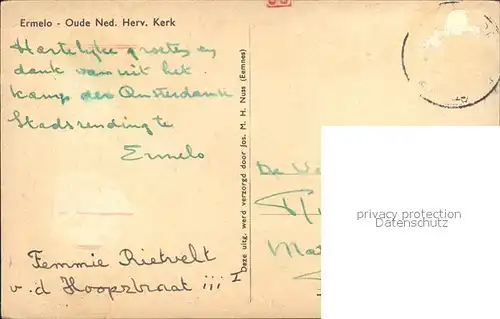 Ermelo - Oude Ned. Herv. Kerk
Hartelijke groeten en
dank van uit het
kamp der Amsterdamse
Stadszending te
Ermelo
Deze uitg. werd verzorgd door Jos. M. H. Nuss (Eemnes)
De
privacy protection
Datenschutz
Femmie Rietvelt
v.d Hoopstraat iii I